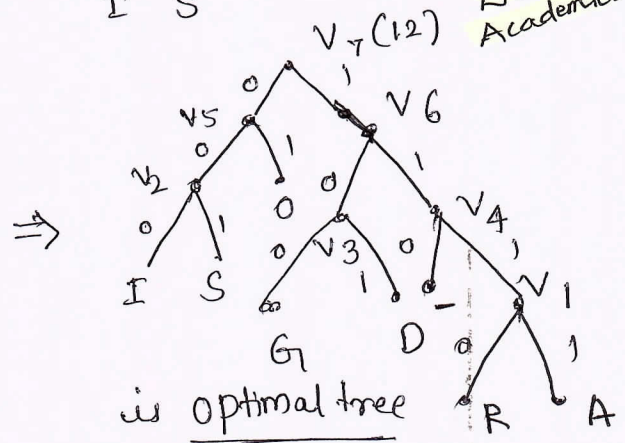 I S
Academic
V7 (12)
0 1
V5 V6
0 1 0 1
V2 0 V3 V4
0 1 0 1 0 1
I S G D - V1
0 1
R A
⇒
is optimal tree